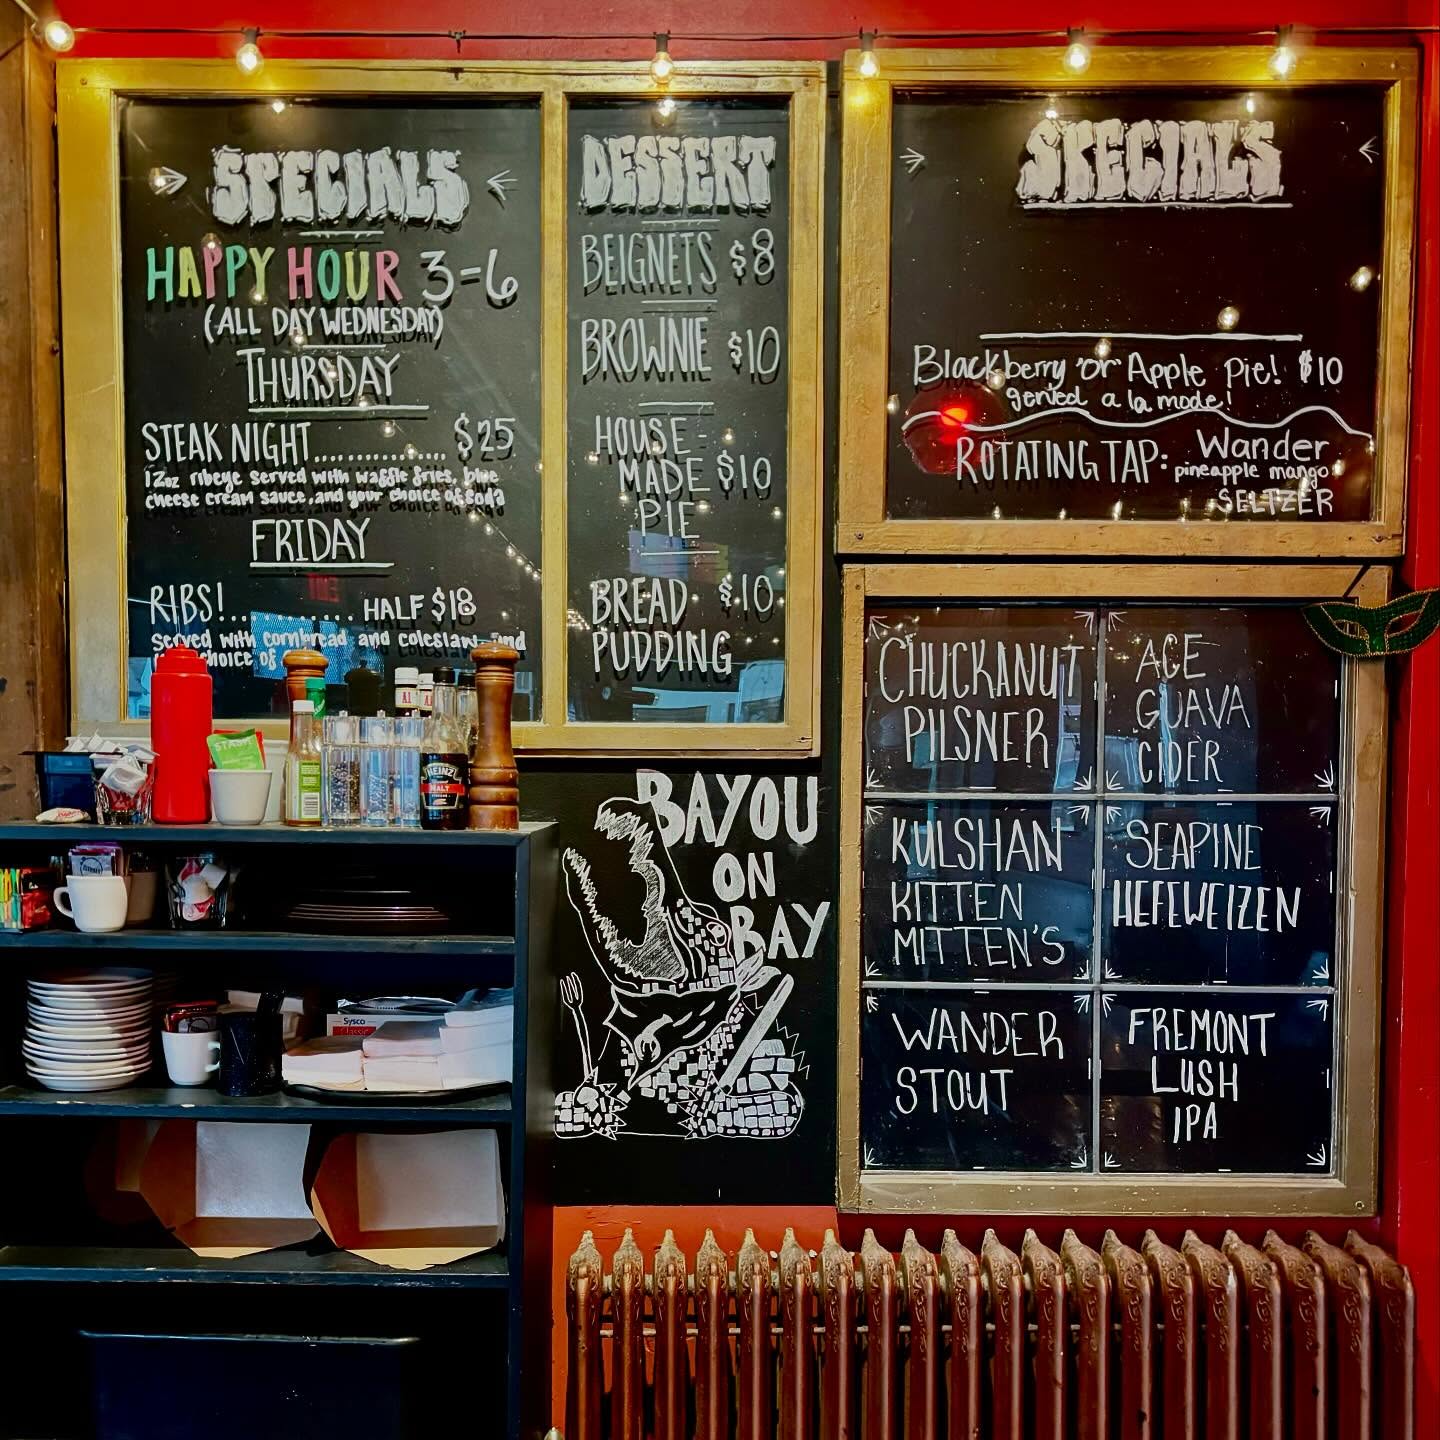 SPECIALS
HAPPY HOUR 3-6
(ALL DAY WEDNESDAY)
THURSDAY
STEAK NIGHT................ $25
12oz ribeye served with waffle fries, blue
cheese cream sauce, and your choice of soda
FRIDAY
RIBS!............ HALF $18
served with cornbread and coleslaw and
choice of
DESSERT
BEIGNETS $8
BROWNIE $10
HOUSE-
MADE $10
PIE
BREAD $10
PUDDING
SPECIALS
Blackberry "or" Apple Pie! $10
served a la mode!
ROTATING TAP: Wander
pineapple mango
SELTZER
BAYOU
ON
BAY
CHUCKANUT
PILSNER
AGE
GUAVA
CIDER
KULSHAN
KITTEN
MITTEN'S
SEAPINE
HEFEWEIZEN
WANDER
STOUT
FREMONT
LUSH
IPA
HEINZ
MALT
A1
Sysco
Classic